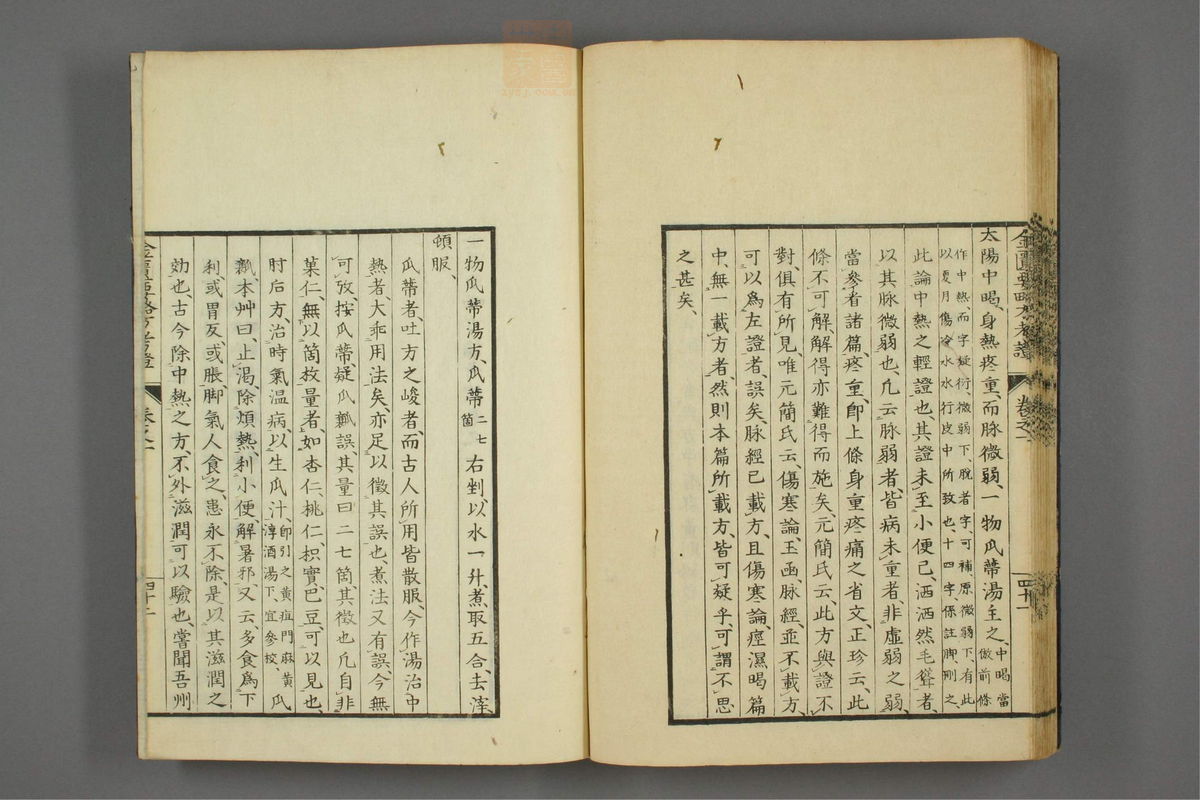 金匱要略方考證 卷之一
太陽中暍、身熱疼重、而脉微弱、一物瓜蔕湯主之、中暍當倣前條
作中熱、而字疑衍、微弱下、脫者字、可補、原微弱下、有此以夏月傷冷水水行皮中所致也、十四字、係註脚、刪之、
此論中熱之輕證也、其證未至小便已、洒洒然毛聳者、
以其脉微弱也、凡云脉弱者、皆病未重者、非虛弱之弱、
當參考諸篇、疼重、卽上條身重疼痛之省文、正珍云、此
條不可解、解得亦難得而施矣、元簡氏云、此方與證不
對、俱有所見、唯元簡氏云、傷寒論、玉函、脉經、並不載方、
可以爲左證者、誤矣、脉經已載方、且傷寒論、痙濕暍篇
中、無一載方者、然則本篇所載方、皆可疑乎、可謂不思
之甚矣、
一物瓜蔕湯方、瓜蔕二七箇右剉、以水一升、煮取五合、去滓
頓服、
瓜蔕者、吐方之峻者、而古人所用皆散服、今作湯治中
熱者、大乖用法矣、亦足以徵其誤也、煮法又有誤、今無
可攷、按瓜蔕、疑瓜瓤誤、其量曰二七箇、其徵也、凡自非
菓仁、無以箇枚量者、如杏仁、桃仁、枳實、巴豆、可以見也、
肘后方、治時氣溫病、以生瓜汁、卽引之黃疸門麻黃淳酒湯下、宜參校、瓜
瓤、本艸曰、止渴、除煩熱、利小便、解暑邪、又云、多食爲下
利、或胃反、或脹、脚氣人食之、患永不除、是以其滋潤之
効也、古今除中熱之方、不外滋潤、可以驗也、嘗聞吾州
金匱要略方考證 卷之一